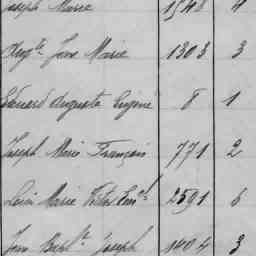 Joseph Marie 1548 4
Aug.te Jean Marie 1303 3
Edouard Auguste Eugène 8 1
Joseph Marie François 771 2
Louis Marie Victor Em.el 2591 6
Jean Bap.te Joseph 1404 3